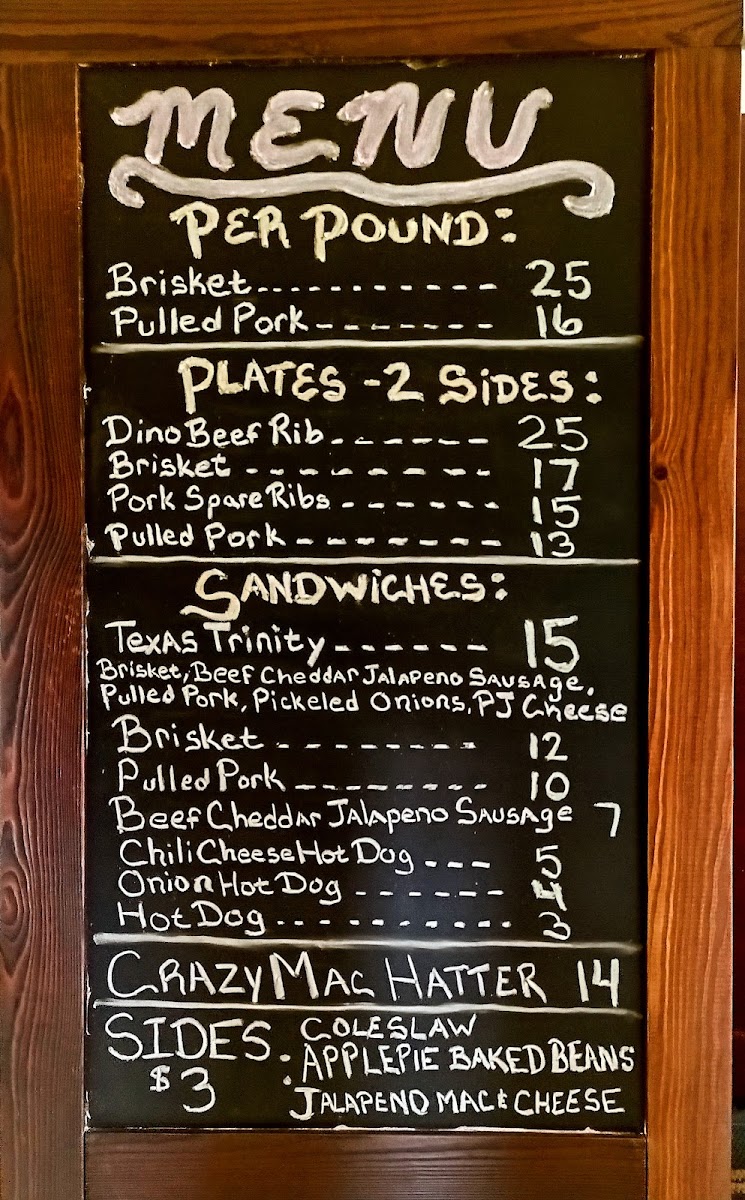 MENU
PER POUND:
Brisket----------- 25
Pulled Pork------- 16
PLATES -2 SIDES:
Dino Beef Rib------ 25
Brisket --------- 17
Pork Spare Ribs ------ 15
Pulled Pork ------- 13
SANDWICHES:
Texas Trinity------ 15
Brisket, Beef Cheddar Jalapeno Sausage,
Pulled Pork, Pickeled Onions, PJ Cheese
Brisket -------- 12
Pulled Pork -------- 10
Beef Cheddar Jalapeno Sausage 7
Chili Cheese Hot Dog --- 5
Onion Hot Dog ------ 4
Hot Dog ---------- 3
CRAZY MAC HATTER 14
SIDES: COLESLAW
$3 APPLEPIE BAKED BEANS
JALAPENO MAC & CHEESE